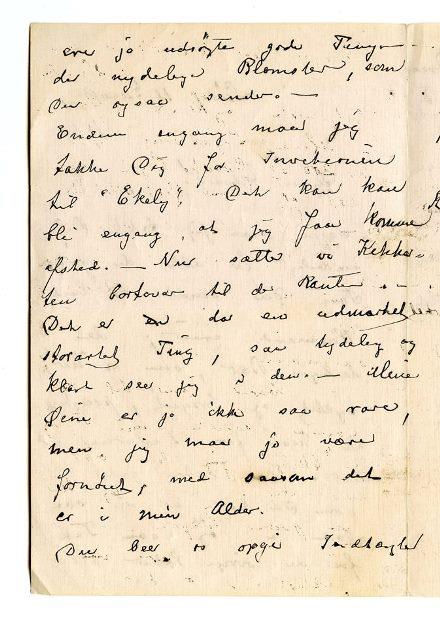 ere jo udsøgte gode Ting –
de nydelige Blomster, som
Du ogsaa sender. –
Endnu engang maa jeg
takke Dig for Invitationen
til "Ekely". Det kan kan
bli engang, at jeg faar komme
afsted. – Nu sætter vi Kikker-
ten bortover til de Kanter. –
Det er da en udmærket
storartet Ting, saa tydelig og
klart seer jeg i den. – Mine
Øine er jo ikke saa rare,
men jeg maa jo være
fornøiet, med saasan det
er i min Alder.
Du beer os opgi Indtægter